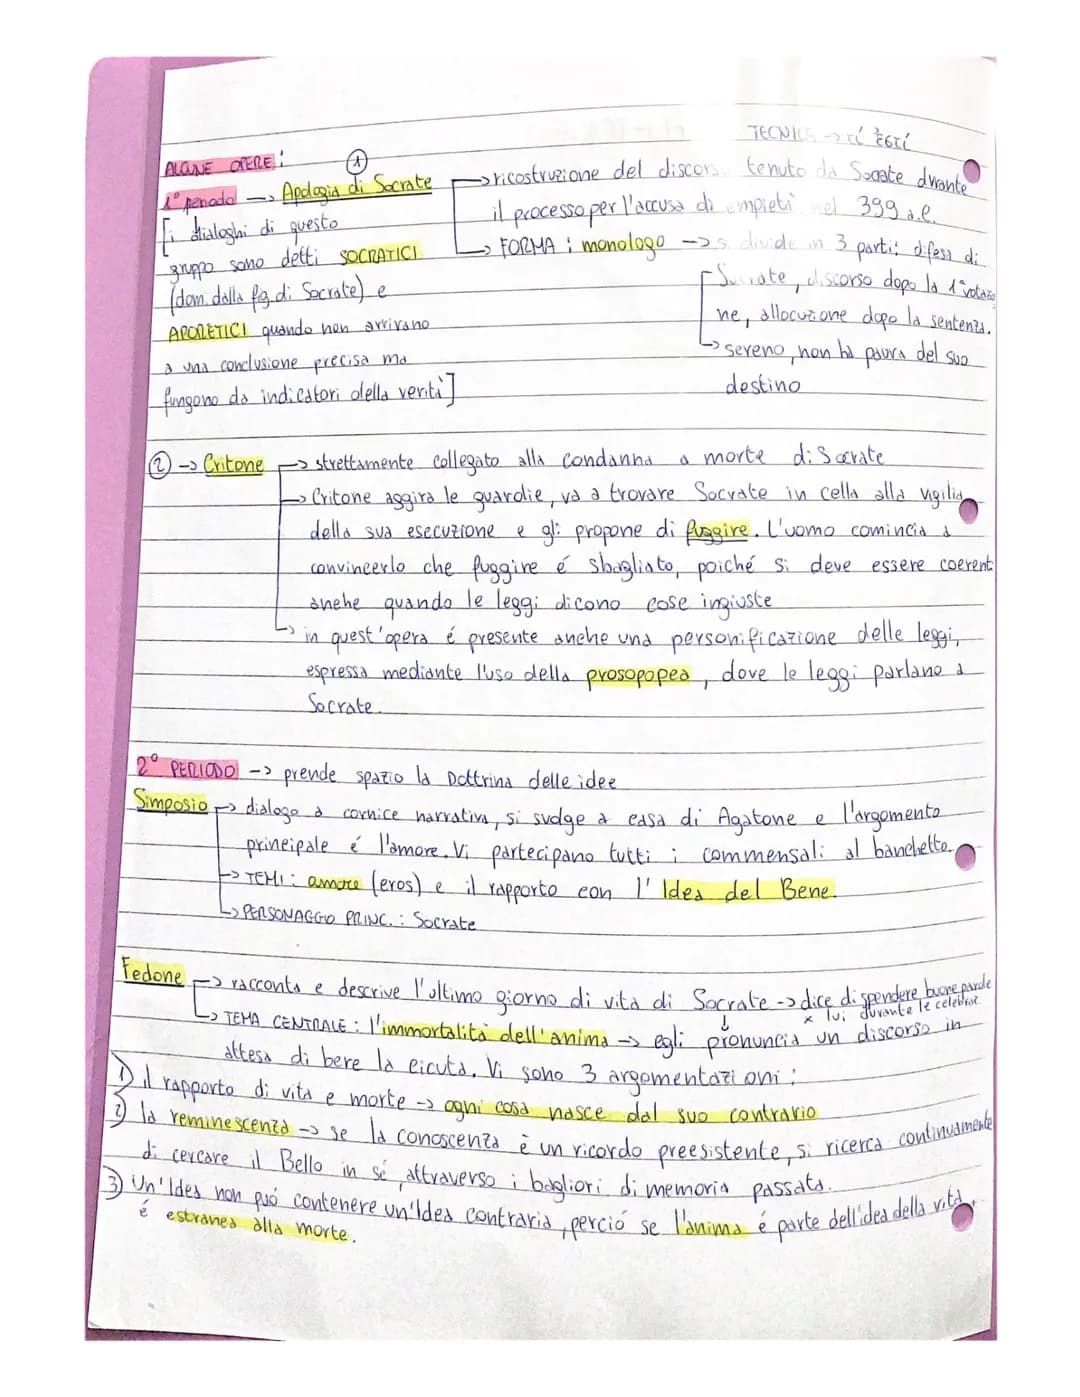 TECNICA -> τί ἐστί
ALCUNE OPERE:
1° periodo -> Apologia di Socrate
1
[i dialoghi di questo
gruppo sono detti SOCRATICI
(dom. dalla fig. di Socrate) e
APORETICI quando non arrivano
a una conclusione precisa ma
fungono da indicatori della verità]
-> ricostruzione del discorso tenuto da Socrate durante
il processo per l'accusa di empietà nel 399 a.C.
-> FORMA: monologo -> si divide in 3 parti: difesa di
Socrate, discorso dopo la 1° votazio
ne, allocuzione dopo la sentenza.
-> sereno, non ha paura del suo
destino
2 -> Critone -> strettamente collegato alla condanna a morte di Socrate
-> Critone aggira le guardie, va a trovare Socrate in cella alla vigilia
della sua esecuzione e gli propone di fuggire. L'uomo comincia a
convincerlo che fuggire é sbagliato, poiché si deve essere coerent
anche quando le leggi dicono cose ingiuste
-> in quest'opera é presente anche una personificazione delle leggi,
espressa mediante l'uso della prosopopea, dove le leggi parlano a
Socrate.
2° PERIODO -> prende spazio la Dottrina delle idee
Simposio -> dialogo a cornice narrativa, si svolge a casa di Agatone e l'argomento
principale é l'amore. Vi partecipano tutti i commensali al banchetto.
-> TEMI: amore (eros) e il rapporto con l'Idea del Bene.
-> PERSONAGGIO PRINC.: Socrate
Fedone -> racconta e descrive l'ultimo giorno di vita di Socrate -> dice di spendere buone parole
x lui durante le celebraz.
-> TEMA CENTRALE: l'immortalità dell'anima -> egli pronuncia un discorso in
attesa di bere la cicuta. Vi sono 3 argomentazioni:
1) il rapporto di vita e morte -> ogni cosa nasce dal suo contrario
2) la reminescenza -> se la conoscenza è un ricordo preesistente, si ricerca continuamente
di cercare il Bello in sé, attraverso i bagliori di memoria passata.
3) Un'Idea non puó contenere un'Idea contraria, perció se l'anima é parte dell'idea della vita,
é estranea alla morte.